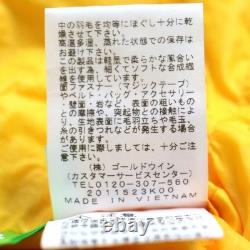 中の羽毛を均等にほぐし十分に乾
燥させてください。
高温多湿、蒸れた状態での保存は
お避け下さい。
この製品は軽量で柔らかな風合い
を出す為に、細くてソフトな合成繊
維を使用しています。
面ファスナー(マジックテープ)
やベルト・バッグ・アクセサリー
・壁・岩など、表面の粗いもの
との摩擦や、突起物との接触によ
り、生地表面に毛羽立ちや毛玉、
糸の引きつれなどが生じますので
ご使用に際しましては、十分ご注
意ください。
(株)ゴールドウイン
(カスタマーサービスセンター)
TEL0120-307-560
2011523K00
MADE IN VIETNAM